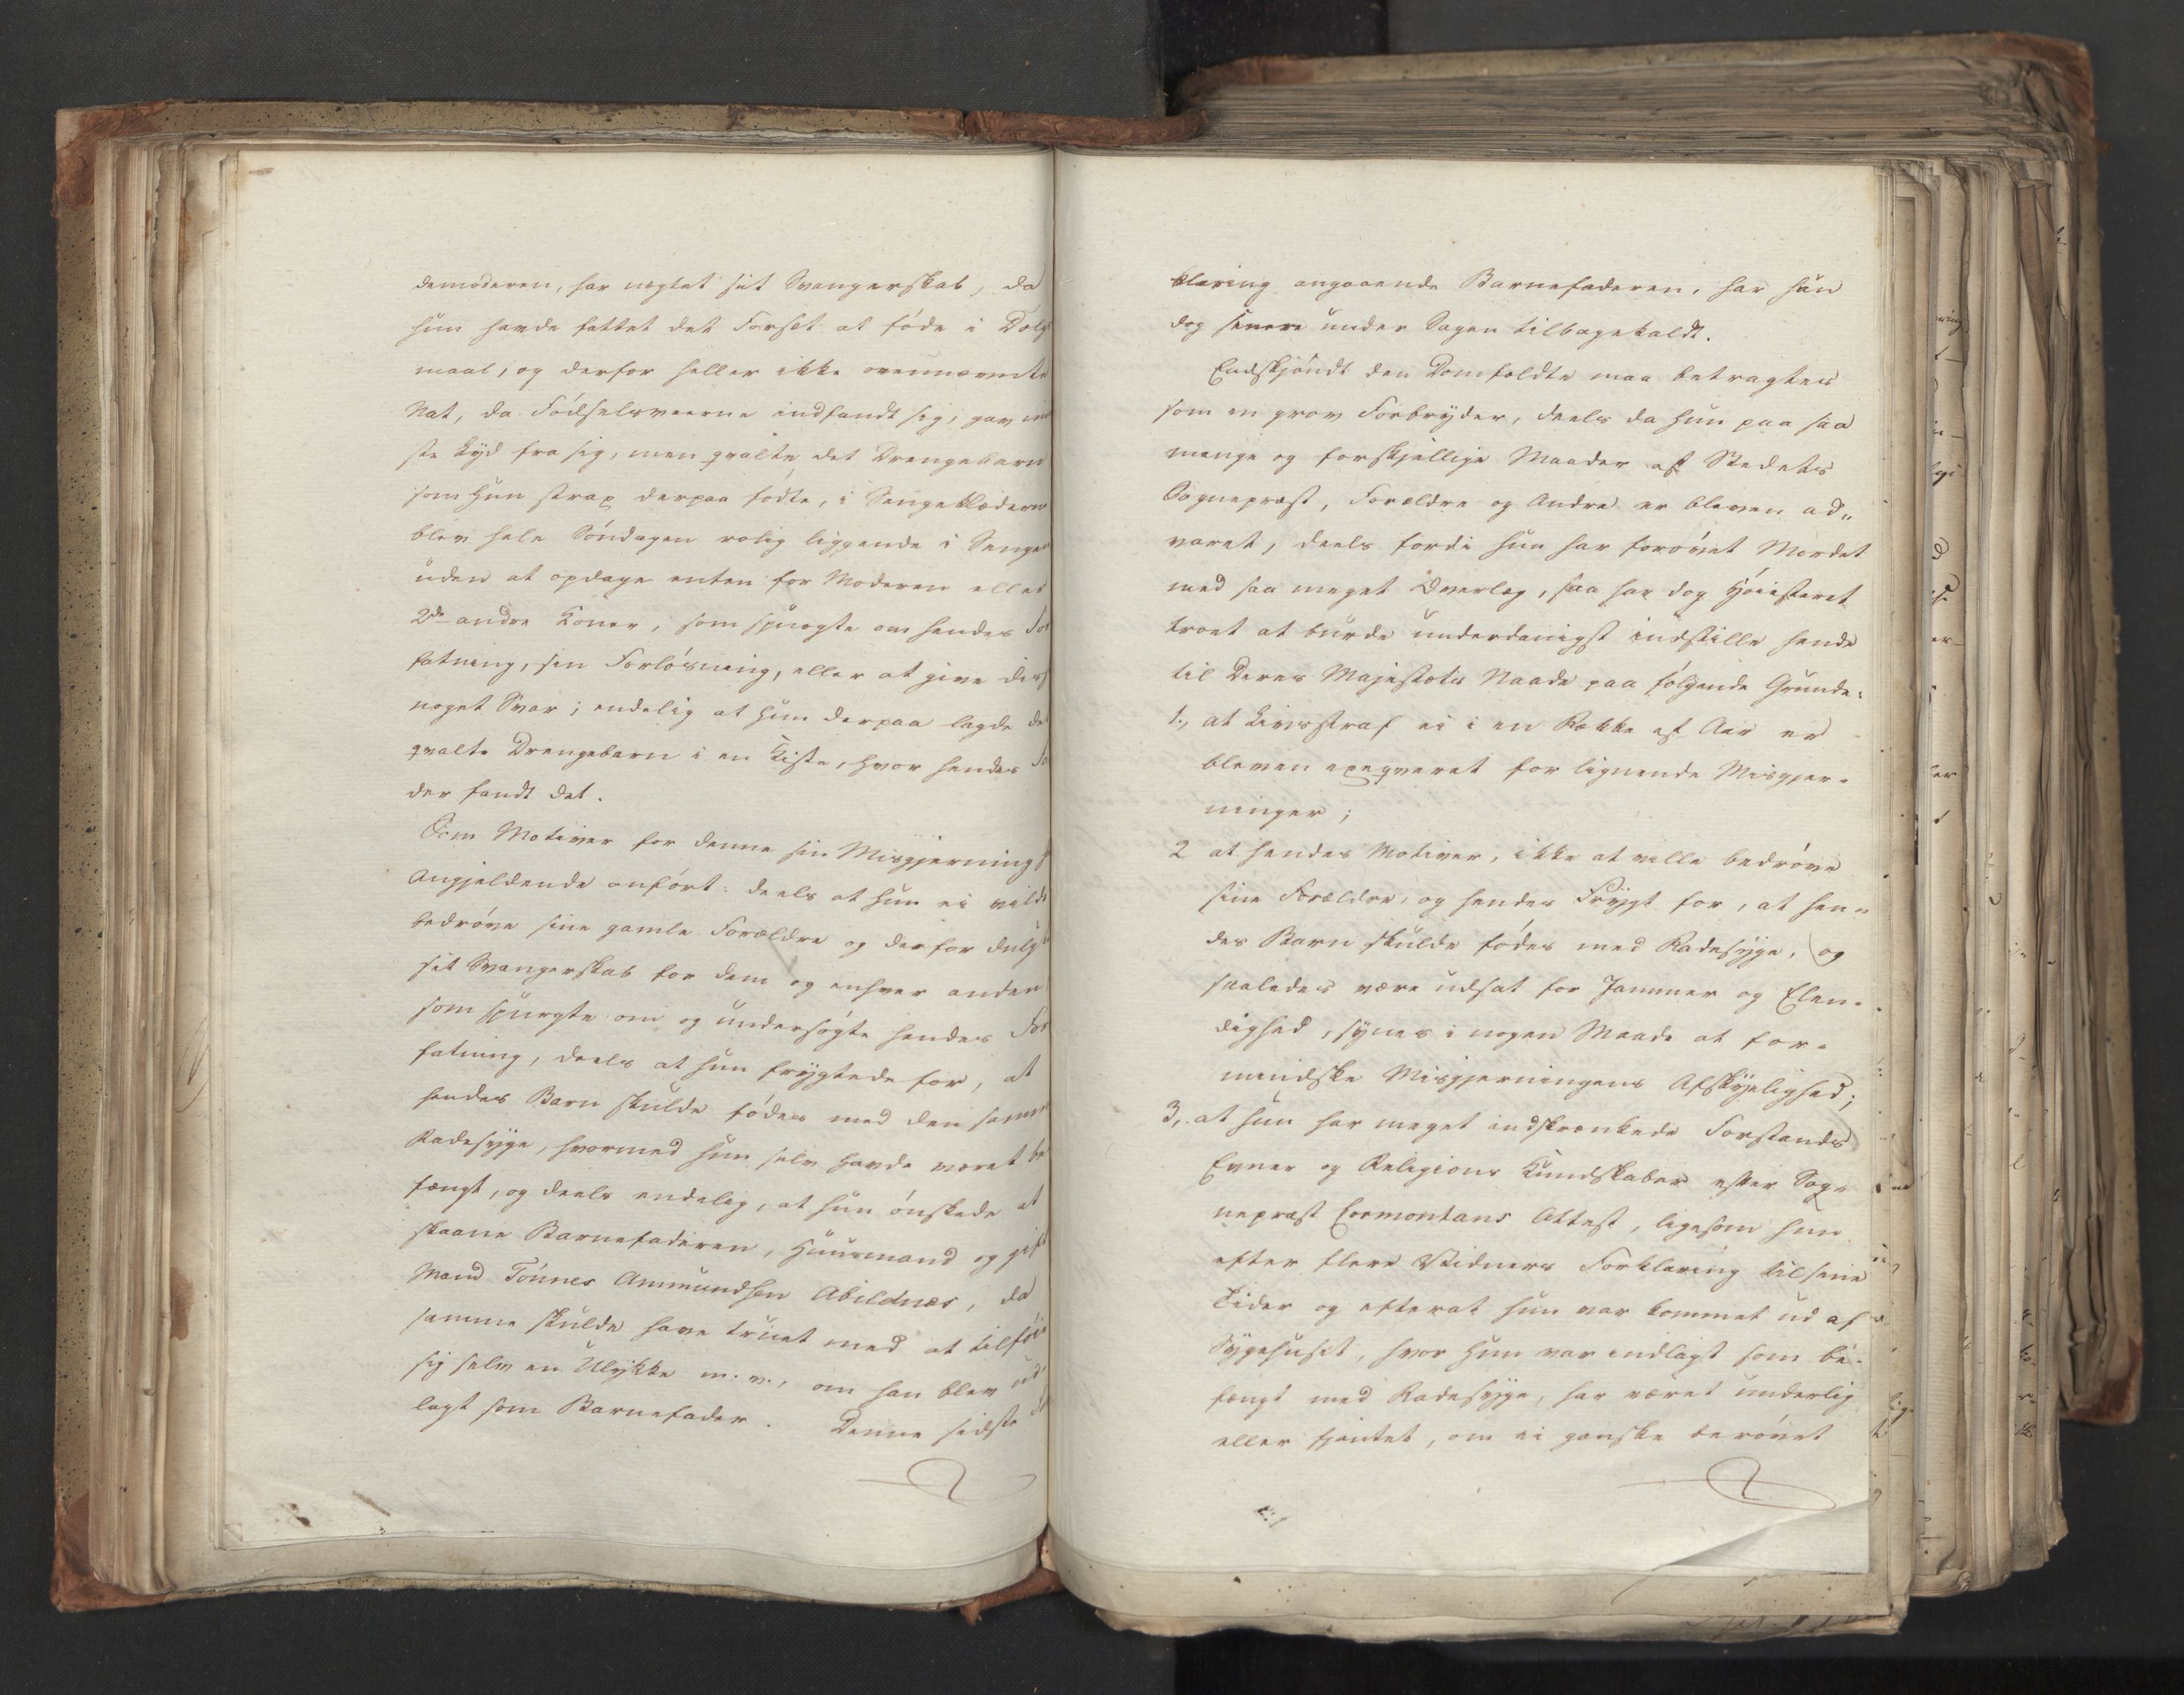 demoderen, har nægtet sit Svangerskab, da
hun havde fattet det Forsæt at föde i Dölgs
maal, og derfor heller ikke ovennævnte
Nat, da Födselsveerne indfandt sig, gav
ste Lyd fra sig, men qvalte det Drengebarn
som hun strax derpaa födte, i Sengeklæderne
blev hele Söndagen rolig liggende i Sengen
uden at opdage enten for Moderen eller
2de andre Koner, som spurgte om hendes For
fatning, sin Forlösning, eller at give dem
noget Svar; endelig at hun derpaa lagde det
qvalte Drengebarn i en Kiste, hvor hendes Fa
der fandt det.
Som Motiver for denne sin Misgjerning
Angjeldende anfört: deels at hun ei vilde
bedröve sine gamle Forældre og derfor dulgte
sit Svangerskab for dem og enhver anden
som spurgte om og undersögte hendes For
fatning, deels at hun frygtede for, at
hendes Barn skulde födes med den samme
Radesyge, hvormed hun selv havde været be
fængt, og deels endelig, at hun önskede at
skaane Barnefaderen, Huusmand og gift
Mand Tönnes Ammundsen Abildnæs, da
samme skulde have truet med at tilföie
sig selv en Ulykke m. v., om han blev ud
lagt som Barnefader. Denne sidste For
klaring angaaende Barnefaderen, har hun
dog senere under Sagen tilbagekaldt.
Endskjöndt den Domfældte maa betragtes
som en grov Forbryder, deels da hun paa saa
mange og forskjellige Maader af Stedets
Sognepræst, Forældre og Andre er bleven ad„
varet, deels fordi hun har forövet Mordet
med saa meget Overlæg, saa har dog Höiesteret
troet at burde underdanigst indstille hende
til Deres Majestæts Naade paa fölgende Grunde:
1., at Livsstraf ei i en Række af Aar er
bleven exeqveret for lignende Misgjer=
ninger;
2 at hendes Motiver, ikke at ville bedröve
sine Forældre, og hendes Frygt for, at hen=
des Barn skulde födes med Radesyge, og
saaledes være udsat for Jammer og Elen=
dighed, synes i nogen Maade at for=
mindske Misgjerningens Afskyelighed;
3, at hun har meget indskrænkede Forstands
Evner og Religions Kundskaber efter Sog=
nepræst Cormontans Attest, ligesom hun
efter flere Vidners Forklaring til sine
Tider og efterat hun var kommet ud af
Sygehuset, hvor hun var indlagt som be=
fængt med Radesyge, har været underlig
eller fjantet, om ei ganske berövet